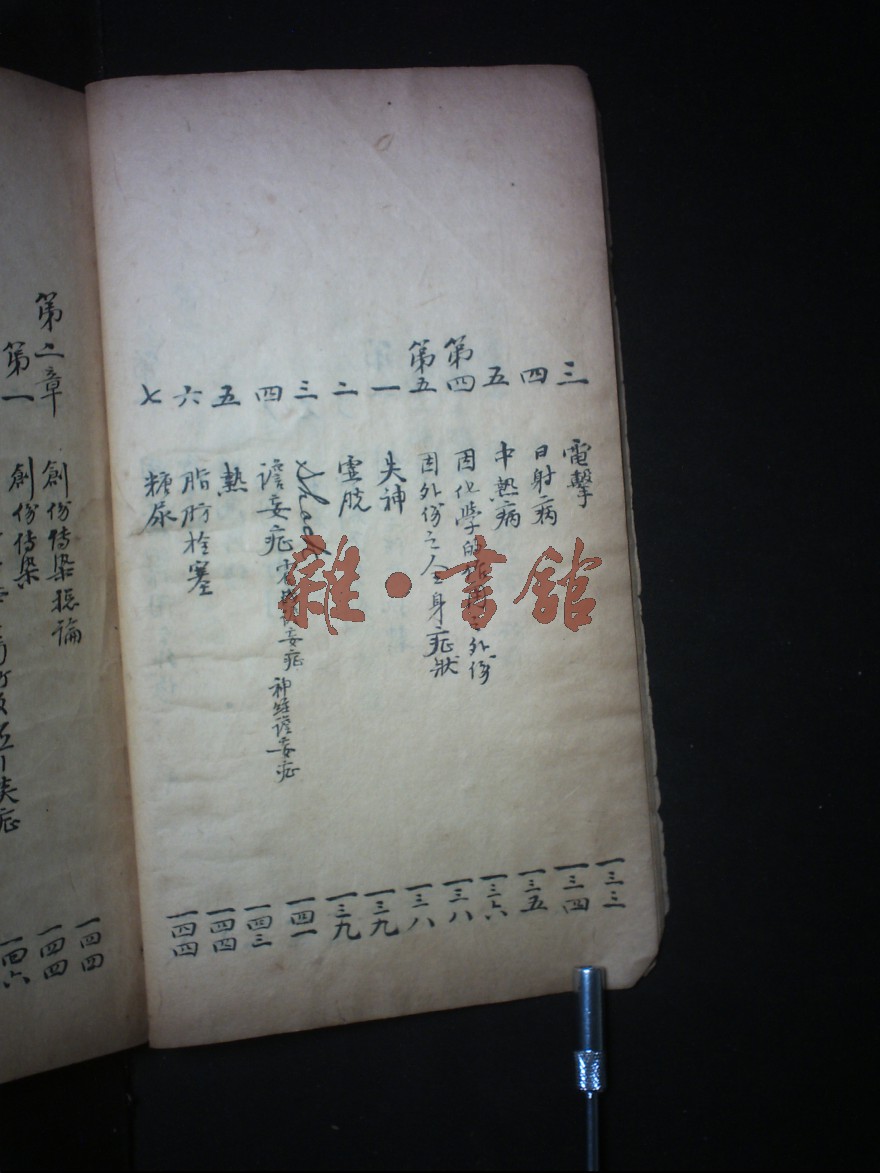 三 電擊 一三三
四 日射病 一三四
五 中熱病 一三五
第四 因化學的 外伤 一三六
第五 因外伤之全身症狀 一三八
一 失神 一三八
二 虛脱 一三九
三 Shack 一三九
四 譫妄症 妄症 神經譫妄症 一四一
五 熱 一四三
六 脂肪栓塞 一四四
七 糖尿 一四四
第二章 創伤傳染總論 一四四
第一 創伤傳染 一四四
炎症 一四六
雜·書館